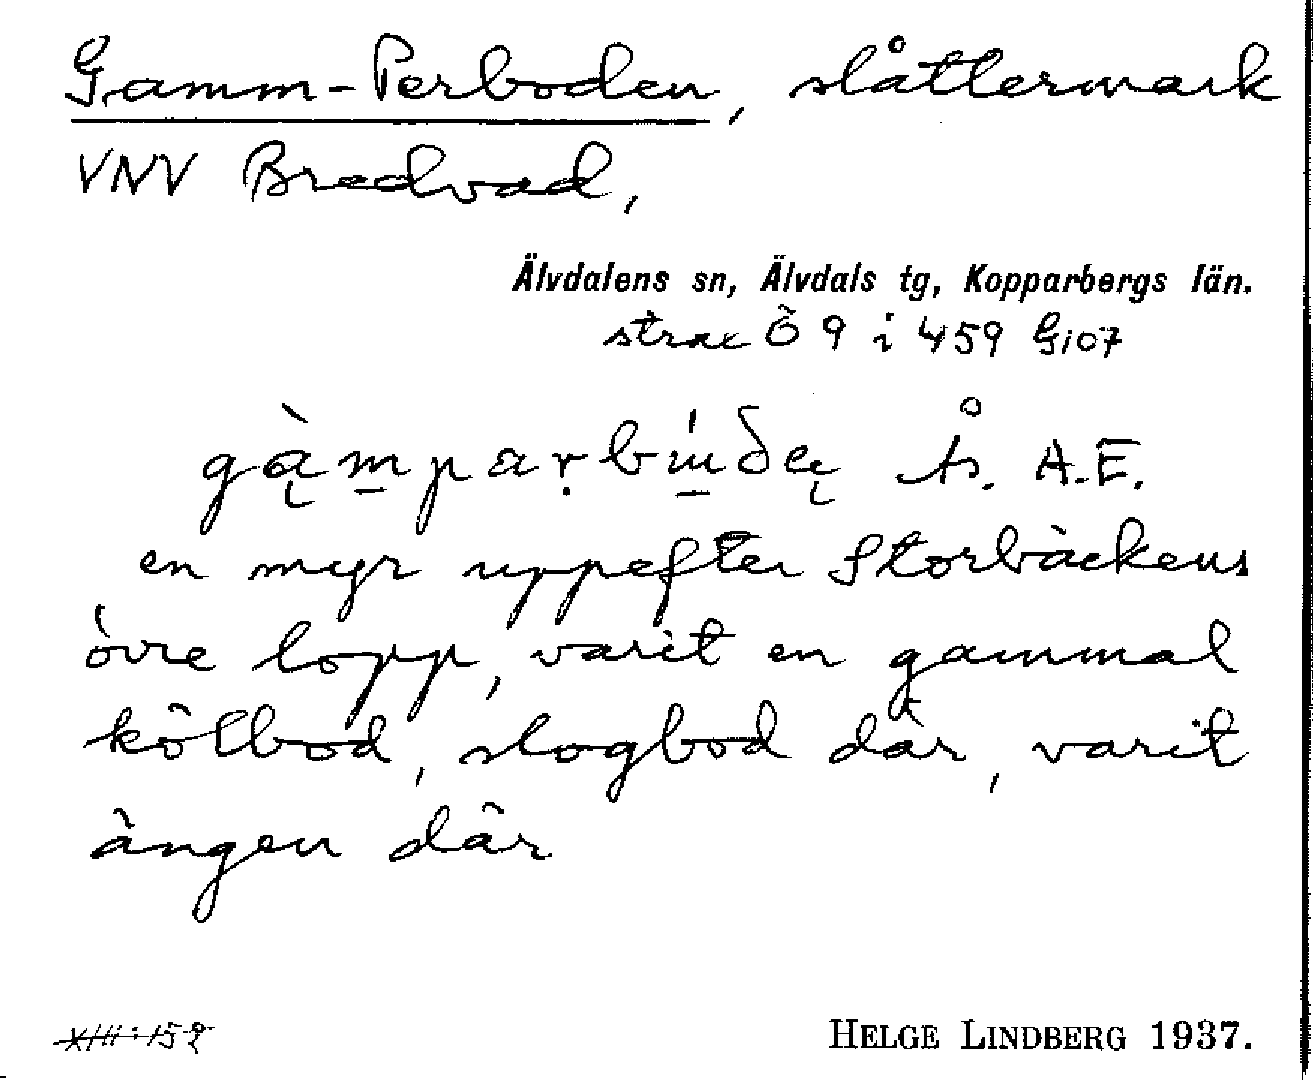 Gamm-Perboden, slåttermark
VNV Bredvad,
Älvdalens sn, Älvdals tg, Kopparbergs län.
strax Ö 9 i 459 G107
Å. A.E.
en myr uppefter Storbäckens
övre lopp, varit en gammal
kölbod, slogbod där, varit
ängen där
XIII:159
HELGE LINDBERG 1937.